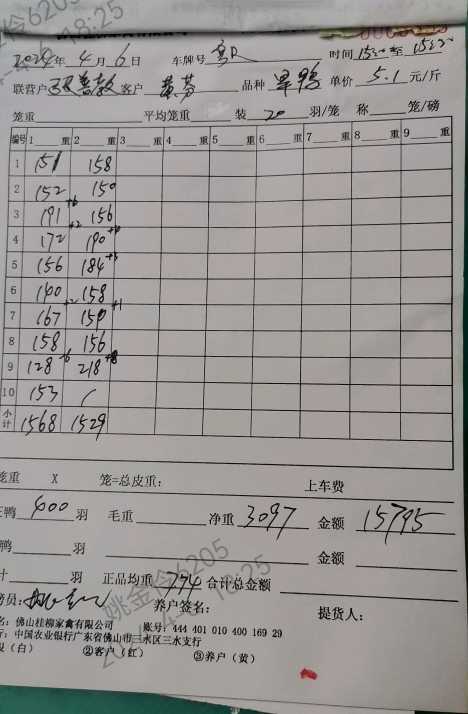 姚金伶6205
18:25
2024年4月6日 车牌号 时间 15:20至15:22
联营户 客户 黄芬 品种 旱鸭 单价 5.1 元/斤
笼重 平均笼重 装 20 羽/笼 称 笼/磅
编号 1 重 2 重 3 重 4 重 5 重 6 重 7 重 8 重 9 重
1 151 158
2 152 150
3 191 +6 156
4 172 +2 190
5 156 184
6 140 158
7 167 +2 150 +1
8 158 156
9 128 218
10 153 /
小计 1568 1529
笼重 X 笼=总皮重: 上车费
鸭 600 羽 毛重 净重 3097 金额 15795
鸭 羽 金额
计 羽 正品均重 合计总金额
姚金伶6205
18:25
员: 养户签名: 提货人:
名: 佛山桂柳家禽有限公司 账号: 444 401 010 400 169 29
行: 中国农业银行广东省佛山市三水区三水支行
(白) ②客户(红) ③养户(黄)